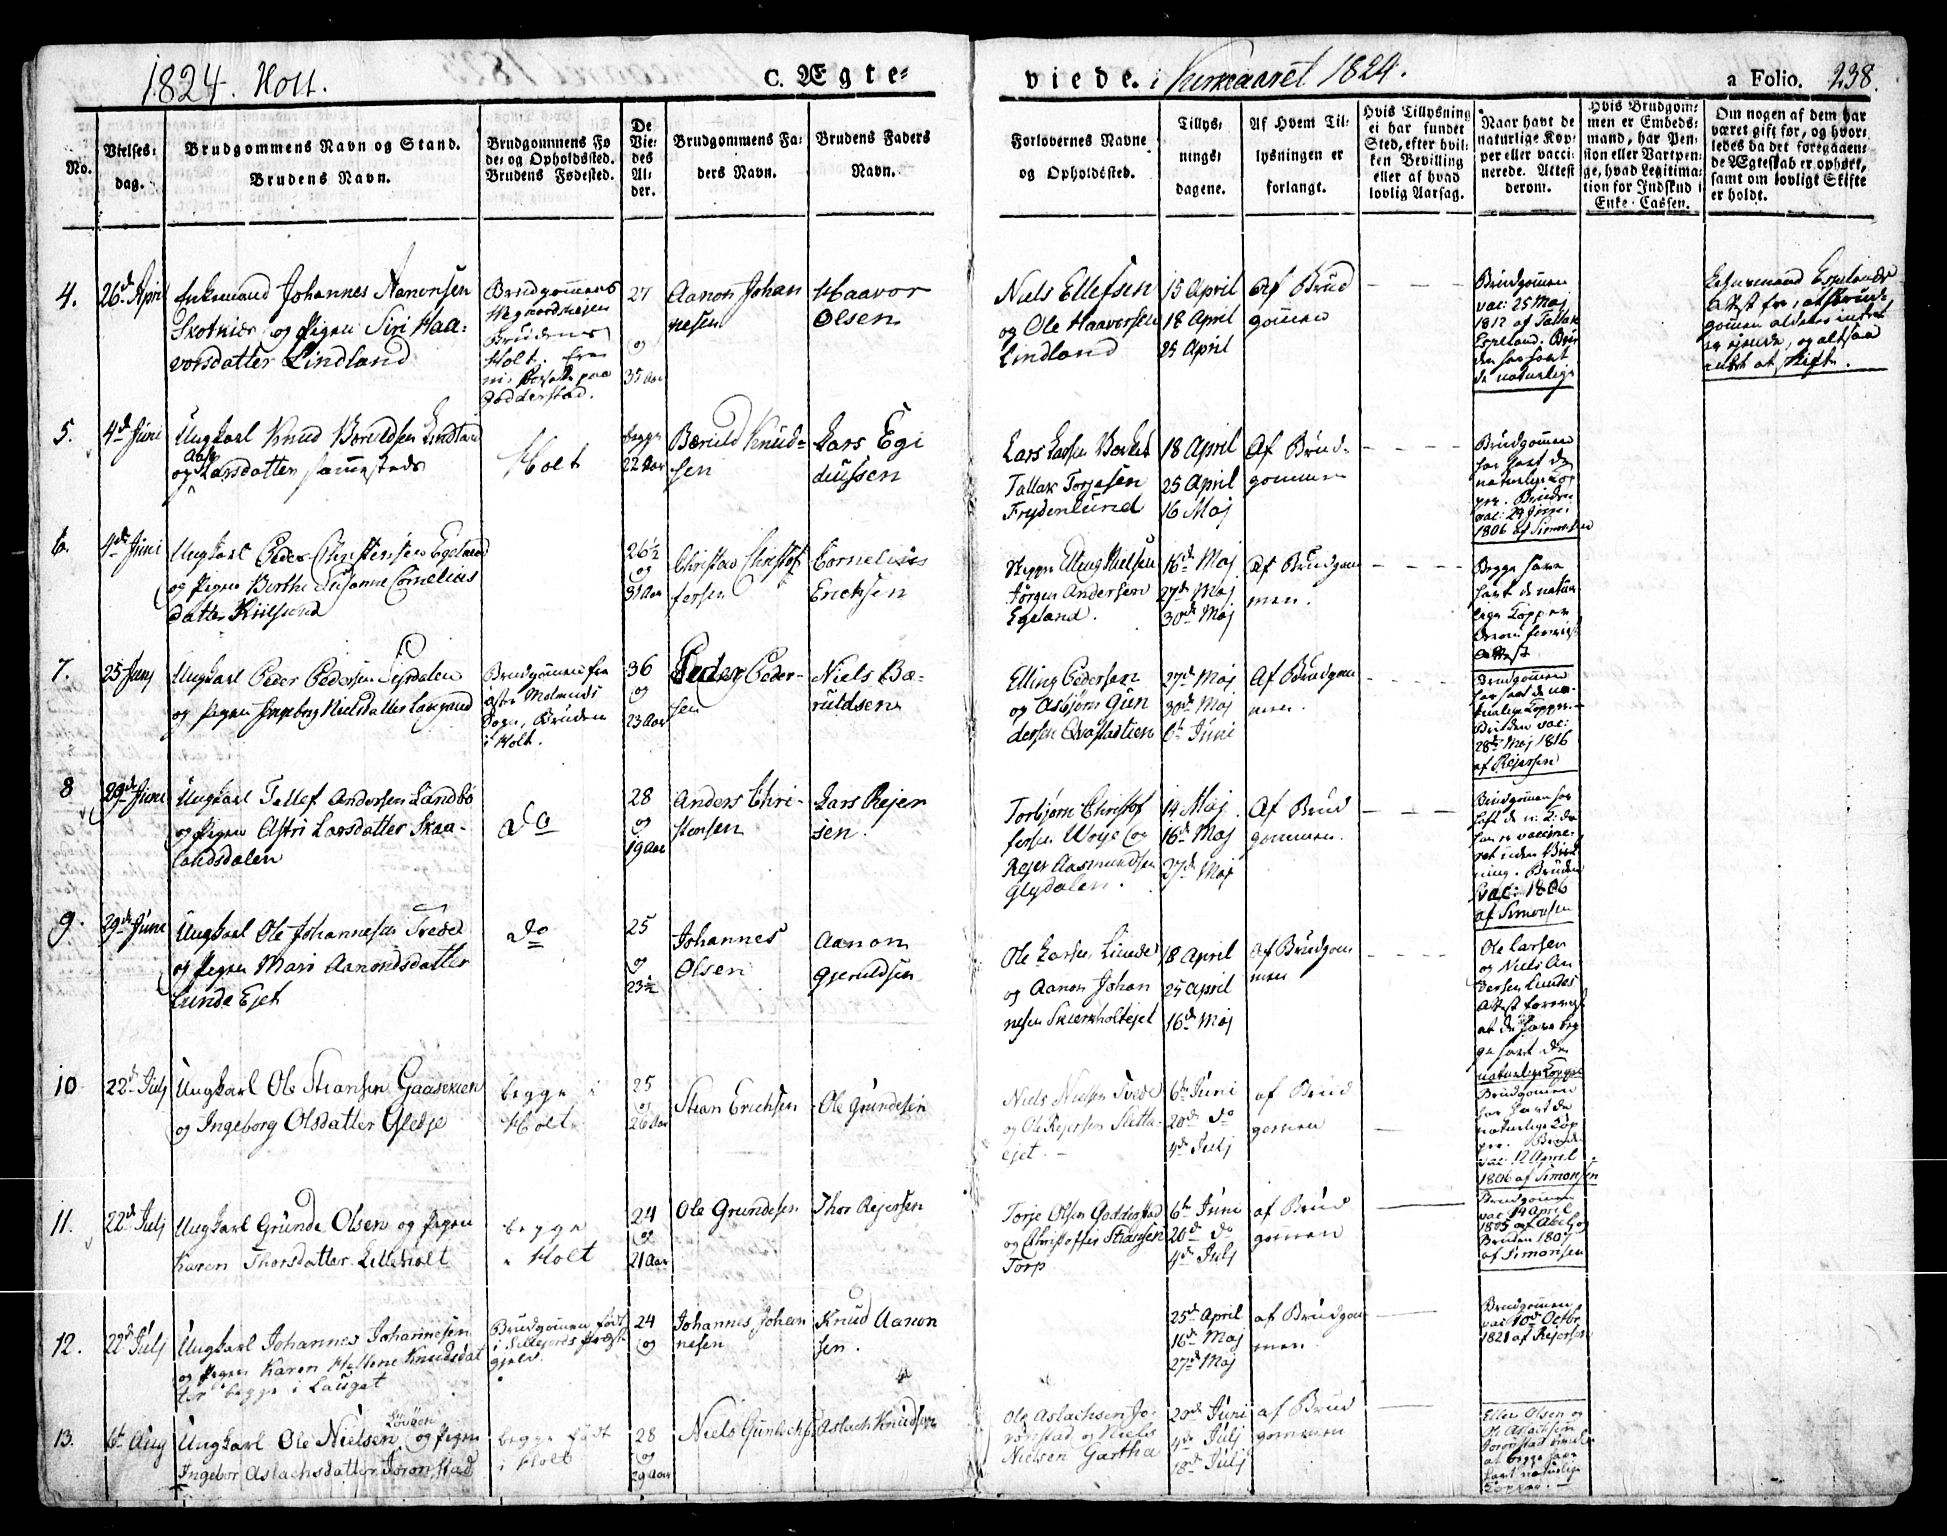 1824. Holt.
C. Ægte-
viede. i Kirkeaaret 1824.
a Folio. 238.
No.
Vielses-
dag.
Brudgommens Navn og Stand.
Brudens Navn.
Brudgommens Fø
de- og Opholdssted.
Brudens Fødested.
De
Vie-
des
Al-
der.
Brudgommens Fa-
ders Navn.
Brudens Faders
Navn.
Forlovernes Navne
og Opholdssted.
Tillys-
nings-
dagene.
Af Hvem Til-
lysningen er
forlangt.
Hvis Tillysning
ei har fundet
Sted, efter hvil-
ken Bevilling
eller af hvad
lovlig Aarsag.
Naar havt de
naturlige Kop-
per eller vacci-
nerede. Attest
derom.
Hvis Brudgom-
men er Embeds-
mand, har Pen-
sion eller Vartpen-
ge, hvad Legitima-
tion for Indskud i
Enke-Cassen.
Om nogen af dem har
været gift før, og hvor-
ledes da det foregaaen-
de Ægteskab er ophørt,
samt om lovligt Skifte
er holdt.
4.
26d April
Enkemand Johannes Aanonsen
Skotnier og Pigen Siri Haa-
vorsdatter Lindland
Brudgommens
Brudens
Holt.
Godderstad.
27
og
35 Aar
Aanon Johan
nesen
Haavor
Olsen
Niels Ellefsen
og Ole Haavorsen
Lindland
15 April
18 April
25 April
Af Brud
gommen
Brudgommen
vac: 25 Maj
1812 af Tallak
Espeland. Bru
den har havt
de naturlige
Attest for, at Brud-
gommen
eiende, og altsaa
intet at skifte.
5.
4d Juni
Ungkarl Knud Beruldsen Lindland
Aase
og Larsdatter sammesteds
Holt
begge
22 Aar
Bæruld Knud-
sen
Lars Egi
diussen
Lars Larsen Berket
Tallak Torjesen
Frydenlund
18 April
25 April
16 Maj
Af Brud-
gommen
Brudgommen
har havt de
naturlige Kop
per. Bruden
vac: 24 Juni
1806 af Simonsen
6.
4de Juni
Ungkarl Peder Christensen Egeland
og Pigen Berthe Susanne Cornelius
datter Kiilsund
26½
og
31 Aar
Christen Christof
fersen
Cornelius
Erichsen
Elling Nielsen
Jørgen Andersen
Egeland.
16de Maj
27de Maj
30de Maj
Af Brudgom
men.
Begge have
havt de natur
lige Kopper
Attest
7.
25 Junj
Ungkarl Peder Pedersen
og Pigen Ingeborg Nielsdatter Laugand
Brudgommen fra
Sogn, Bruden
i Holt.
36
og
23 Aar
Peder Peder-
sen
Niels Bæ-
ruldsen
Elling Pedersen
og Asbjørn Gun
dersen Qvastadlien
27de Maj
30de Maj
6te Juni
Af Brudgom
men.
Brudgommen
har havt de na-
turlige Kopper.
Bruden vac:
28de Maj 1816
af Rejersen
8
29de Juni
Ungkarl Tellef Andersen Landbø
og Pigen Astri Larsdatter Skaa-
landsdalen
do
28
og
19 Aar
Anders Chri-
stensen
Lars Rejer
sen.
Torbjørn Christof
fersen Woje og
Rejer Aasmundsen
Glydalen.
14 Maj
16de Maj
27de Maj
Af Brud
gommen.
Brudgommen har
havt de n: K: den
Bruden
vac: 1806
af Simonsen
9.
29de Juni
Ungkarl Ole Johannesen Tvede
og Pigen Mari Aanonsdatter
Lunde Ejet
do
25
og
23½
Johannes
Olsen
Aanon
Gjeruldsen
Ole Larsen Lunde
og Aanon Johan
nesen Skierkholtejet
18 April
25 April
16de Maj
Af Brudgom
men
Ole Larsen
og Niels An
dersen Lundes
Attest
at de have beg
ge havt de
naturlige Kopper
10
22de Julj
Ungkarl Ole Stiansen Gaaseaaen
og Ingeborg Olsdatter Gletje
begge i
Holt
25
og
26 Aar
Stian Erichsen
Ole Grundesen
Niels Nielsen Tvede
og Ole Rejersen Sletta-
ejet.
6te Juni
20de do
4de Julj
af Brud
gommen
Brudgommen
har havt de
naturlige Kop
per. Bruden
vac: 12 April
1806 af Simonsen
11.
22de Julj
Ungkarl Grunde Olsen og Pigen
Karen Thorsdatter Lilleholt
begge
i Holt
24
og
21 Aar
Ole Grundesen
Thor Rejersen
Torje Olsen Godderstad
og Christoffer Stiansen
Torp
6te Juni
20de do
4de Julj
af Brud
gommen
Brudgommen
vac 14 April
1805 af Abel og
Bruden 1807
af Simonsen
12.
22de Julj
Ungkarl Johannes Johannesen
og Pigen Karen Hellene Knudsdat
ter begge i Lauget
Brudgommen født
i Sillejords Præste
gjeld.
24
og
Johannes Johan
nesen
Knud Aanon
sen.
25de April
16de Maj
27de Maj
af Brudgom
men.
Brudgommen
vac 10de Octbr
1821 af Rejersen
13.
6te Aug
Løvøen
Ungkarl Ole Nielsen og Pigen
Ingebor Aslachsdatter Joronstad
begge født
i Holt
28
og
29 Aar
Niels Gunlachs
Aslach Knudsen
Ole Aslachsen Jo-
ronstad og Niels
Nielsen Gartha
20de Juni
4de Julj
18de Julj
af Brud
gommen
Ellev Olsen og
Ole Aslachsen
Joronstad
at begge have
havt naturlige
Kopper.